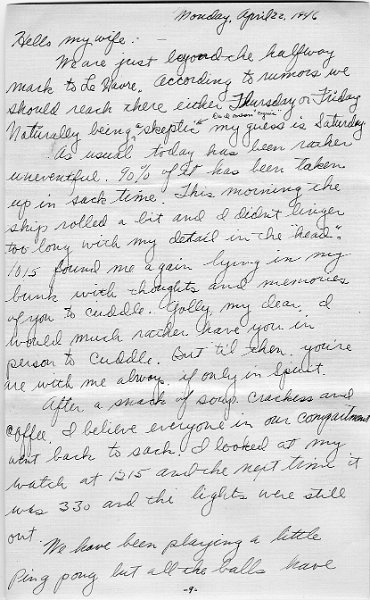 Monday, April 22, 1946
Hello my wife: -
We are just beyond the halfway
mark to Le Havre. According to rumors we
should reach there either Thursday or Friday
Naturally being a "skeptic" my guess is Saturday
As usual today has been rather
uneventful. 90% of it has been taken
up in sack time. This morning the
ship rolled a bit and I didn't linger
too long with my detail in the "head".
1015 found me again lying in my
bunk with thoughts and memories
of you to cuddle. Golly, my dear, I
would much rather have you in
person to cuddle. But til then, you're
with me always if only in spirit.
After a snack of soup, crackers and
coffee, I believe everyone in our compartment
went back to sack. I looked at my
watch at 1215 and the next time it
was 330 and the lights were still
out.
We have been playing a little
Ping pong but all the balls have
-9-